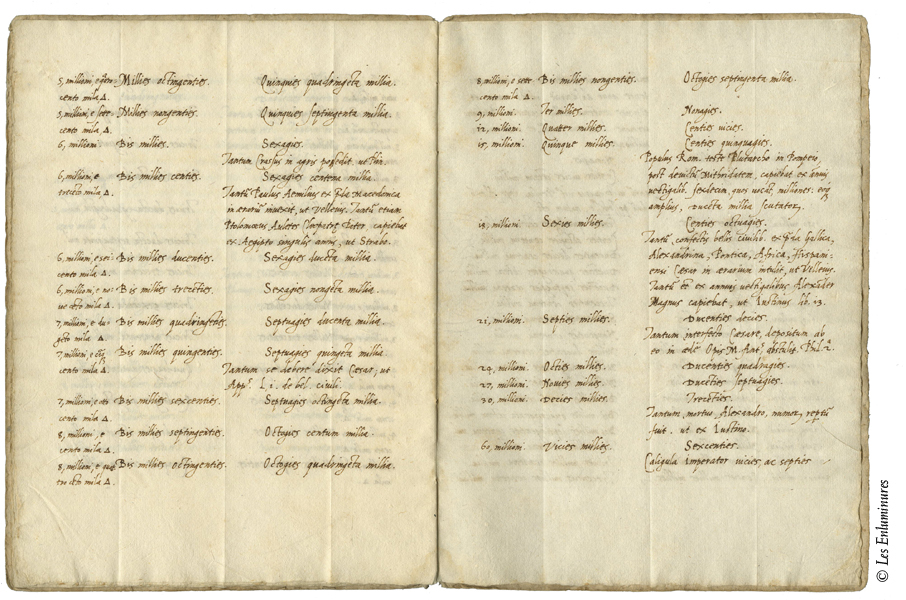 5, millioni, e Millies octingenties. Quinquies quadringẽta millia.
cento mila Δ.
5, millioni, e sette Millies nongenties. Quinquies septingenta millia.
cento mila Δ.
6, millioni. Bis millies. Sexagies.
Tantum Crassus in agris possedit. ut Plin.
6, millioni, e Bis millies centies. Sexagies centena millia.
trecẽto mila, Δ. Tantũ Paulus Aemilius ex Macedonica
in aerariũ inuexit, ut Velleius. Tantũ etiam
Ptolomaeus Auletes Cleopatrę Pater capiebat
ex Aegipto singulis annis, ut Strabo.
6, millioni, e sei Bis millies ducenties. Sexagies ducẽta millia.
cento mila Δ.
6, millioni, e no Bis millies trecẽties. Sexagies nongẽta millia.
uecẽto mila Δ.
7, millioni, e du Bis millies quadringẽties. Septuagies ducenta millia.
gẽto mila Δ.
7, millioni, e Bis millies quingenties. Septuagies quingẽta millia.
cento mila Δ. Tantum se debere dixit Cesar, ut
App. L i. de bel. ciuili.
7, millioni, e otto Bis millies sexcenties. Septuagies octingẽta millia.
cento mila Δ.
8, millioni, e Bis millies septingenties. Octogies centum millia
cento mila Δ.
8, millioni, e Bis millies octingenties. Octogies quadringẽta millia.
trecẽto mila Δ.
8, millioni, e sette Bis millies nongenties. Octogies septingenta millia.
cento mila Δ.
9, millioni. Ter millies. Nonagies.
12, millioni. Quater millies. Centies vicies.
15, millioni. Quinque millies. Centies quinquagies.
Populus Rom. teste Plutarcho in Pompeio,
post deuictũ Mithridatem, capiebat ex annuis
uectigalib. sexdecim, quos uocat, milliones.
amplius, ducẽta millia scutator.
18, millioni. Sexies millies. Centies octuagies.
Tantũ confectis bellis ciuilib. ex Gallica,
Alexandrina, Pontica, Africa, Hispani-
ensi Cesar in aerarium intulit, ut Velleius.
Tantũ ex annuis uectigalibus Alexãder
Magnus capiebat, ut Iustinus lib. 13.
21, millioni. Septies millies. Ducenties decies.
Tantum interfecto Cesare, depositum ab
eo in aede Opis M. Antꝰ abstulit. Phil. 2.
24, millioni. Octies millies. Ducenties quadragies.
27, millioni. Nouies millies. Ducẽties septuagies.
30, millioni. Decies millies. Trecẽties.
Tantum, mortuo Alexandro, numor, reptũ
fuit. ut ex Iustino.
60, millioni. Vicies millies. Sexcenties.
Caligula Imperator vicies, ac septies
© Les Enluminures